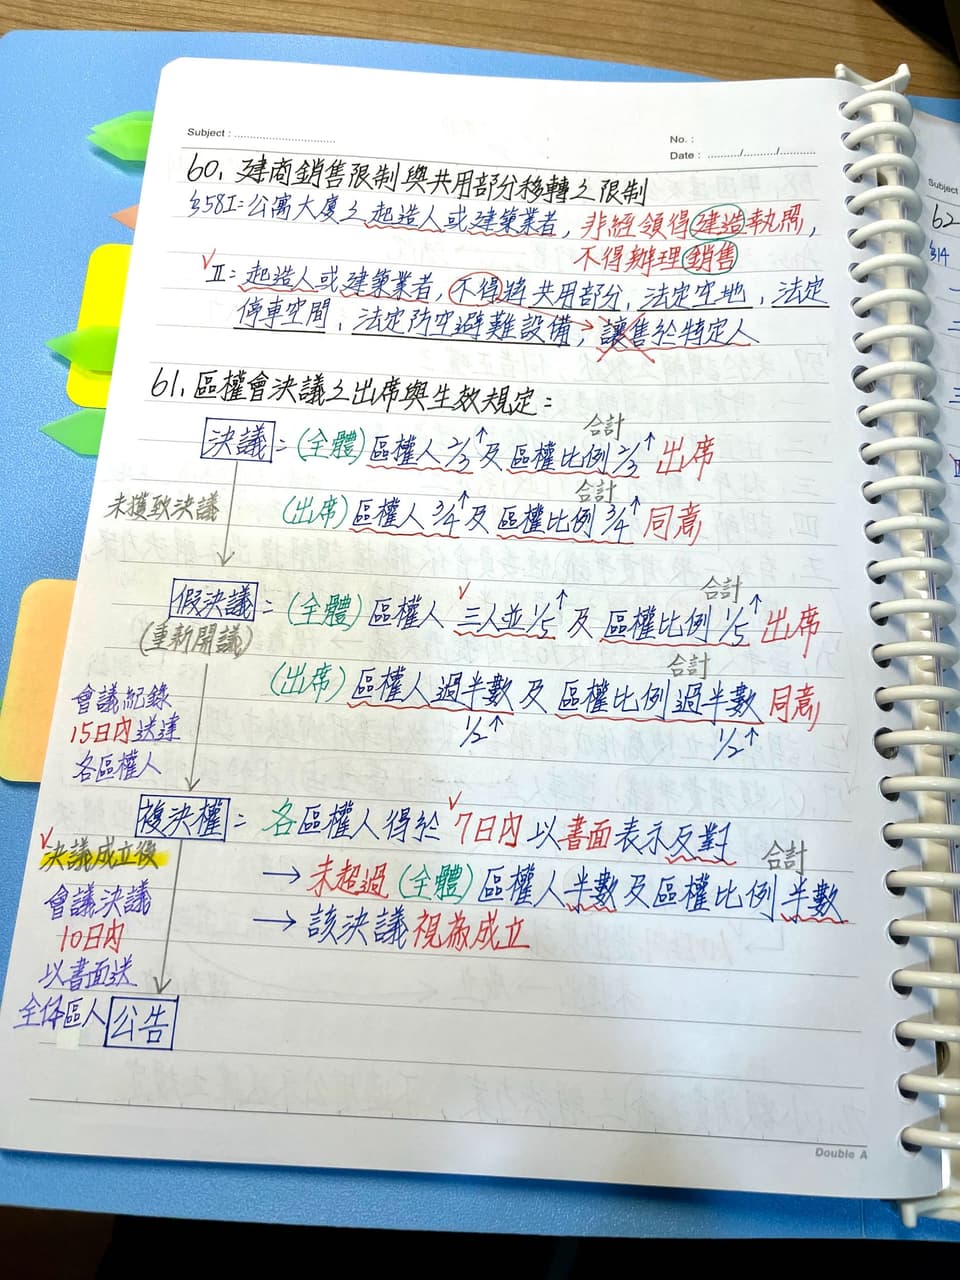 Subject : ..............................
No. :
Date : ........./........./..........
60. 建商銷售限制與共用部分移轉之限制
§58I=公寓大廈之起造人或建築業者, 非經領得建造執照,
不得辦理銷售
✓Ⅱ=起造人或建築業者, 不得將共用部分、法定空地、法定
停車空間、法定防空避難設備, 讓售於特定人
61. 區權會決議之出席與生效規定=
合計
決議 = (全體) 區權人 2/3↑ 及 區權比例 2/3↑ 出席
合計
未獲致決議
(出席) 區權人 3/4↑ 及 區權比例 3/4↑ 同意
合計
假決議 = (全體) 區權人 三人並1/5↑ 及 區權比例 1/5↑ 出席
(重新開議)
合計
(出席) 區權人過半數 及 區權比例過半數 同意
1/2↑ 1/2↑
會議紀錄
15日內送達
各區權人
複決權 = 各區權人得於 7日內 以書面表示反對
合計
✓決議成立後
→ 未超過 (全體) 區權人半數及區權比例半數
會議決議
→ 該決議視為成立
10日內
以書面送
全体區人
公告
Double A
Subject
62
§14